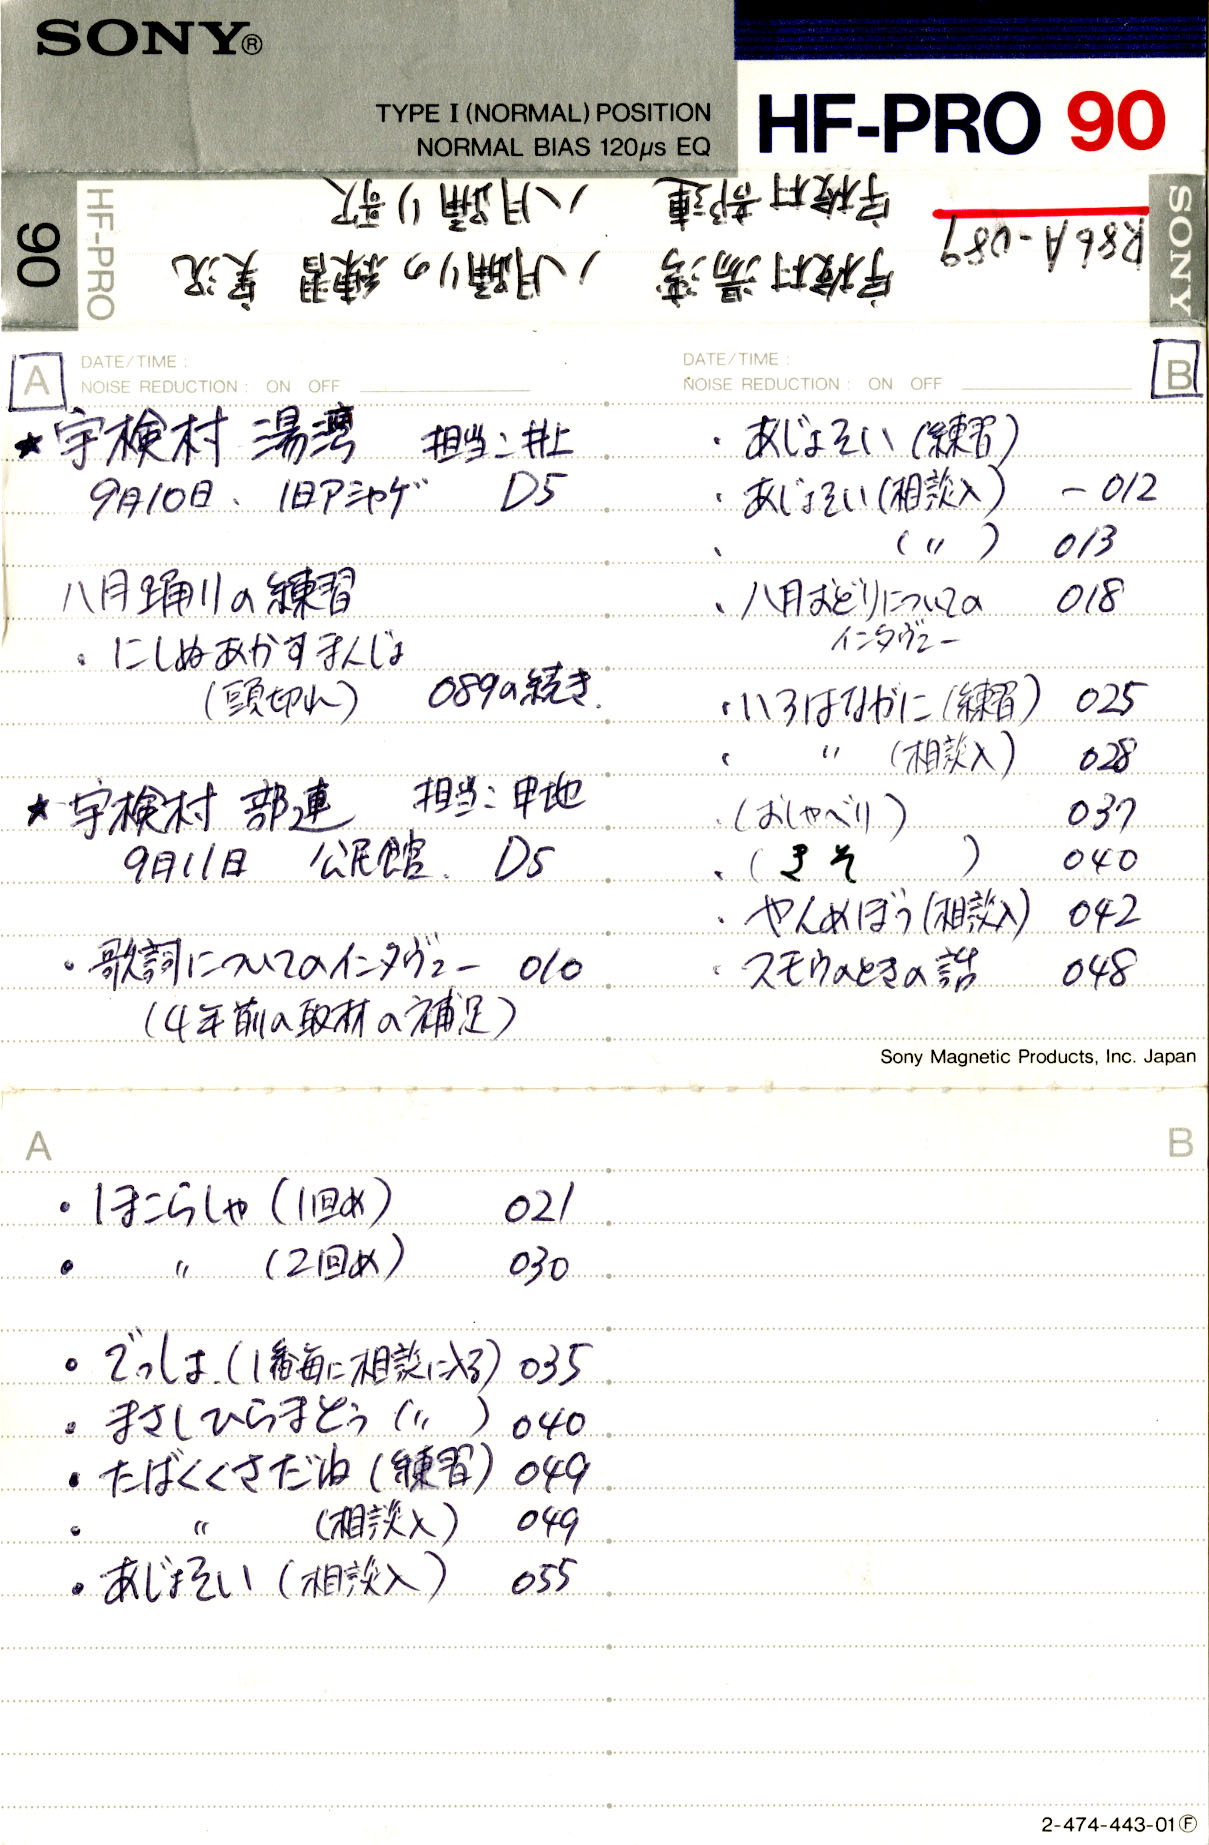 SONY®
TYPE I (NORMAL) POSITION
NORMAL BIAS 120μs EQ
HF-PRO 90
90
HF-PRO
SONY
R86A-089
宇検村湯湾 八月踊りの練習 実況
宇検村部連 八月踊り歌
A
DATE/TIME :
NOISE REDUCTION : ON OFF
★宇検村 湯湾 担当:井上
9月10日、旧アシャゲ D5
八月踊りの練習
・にしぬあかすまんじょ
(頭切れ) 089の続き.
★宇検村 部連 担当:甲地
9月11日 公民館. D5
・歌詞についてのインタヴュー 010
(4年前の取材の補足)
B
DATE/TIME :
NOISE REDUCTION : ON OFF
・あじょそい(練習)
・あじょそい(相談入) -012
、 (〃) 013
、八月おどりについての 018
インタヴュー
・いろはながに(練習) 025
・ 〃 (相談入) 028
・(おしゃべり) 037
、( ) 040
・やんめぼう(相談入) 042
・スモウのときの話 048
Sony Magnetic Products, Inc. Japan
A
・ほこらしゃ(1回め) 021
・ 〃 (2回め) 030
・でっしょ.(1番毎に相談に入る) 035
・まさしひらまとう(〃) 040
・たばくくさだね(練習) 049
・ 〃 (相談入) 049
・あじょそい(相談入) 055
B
2-474-443-01Ⓕ